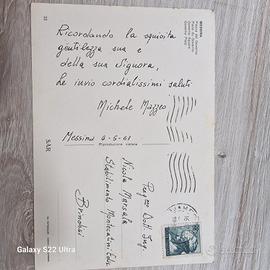 Ricordando la squisita
gentilezza sua e
della sua Signora,
Le invio cordialissimi saluti
Michele Mazzeo
Messina 9-5-61
Preg.mo Dott. Ing.
Nicola Marsala
Stabilimento Montecatini
Brindisi
MESSINA
SAR
Riproduzione vietata
Galaxy S22 Ultra